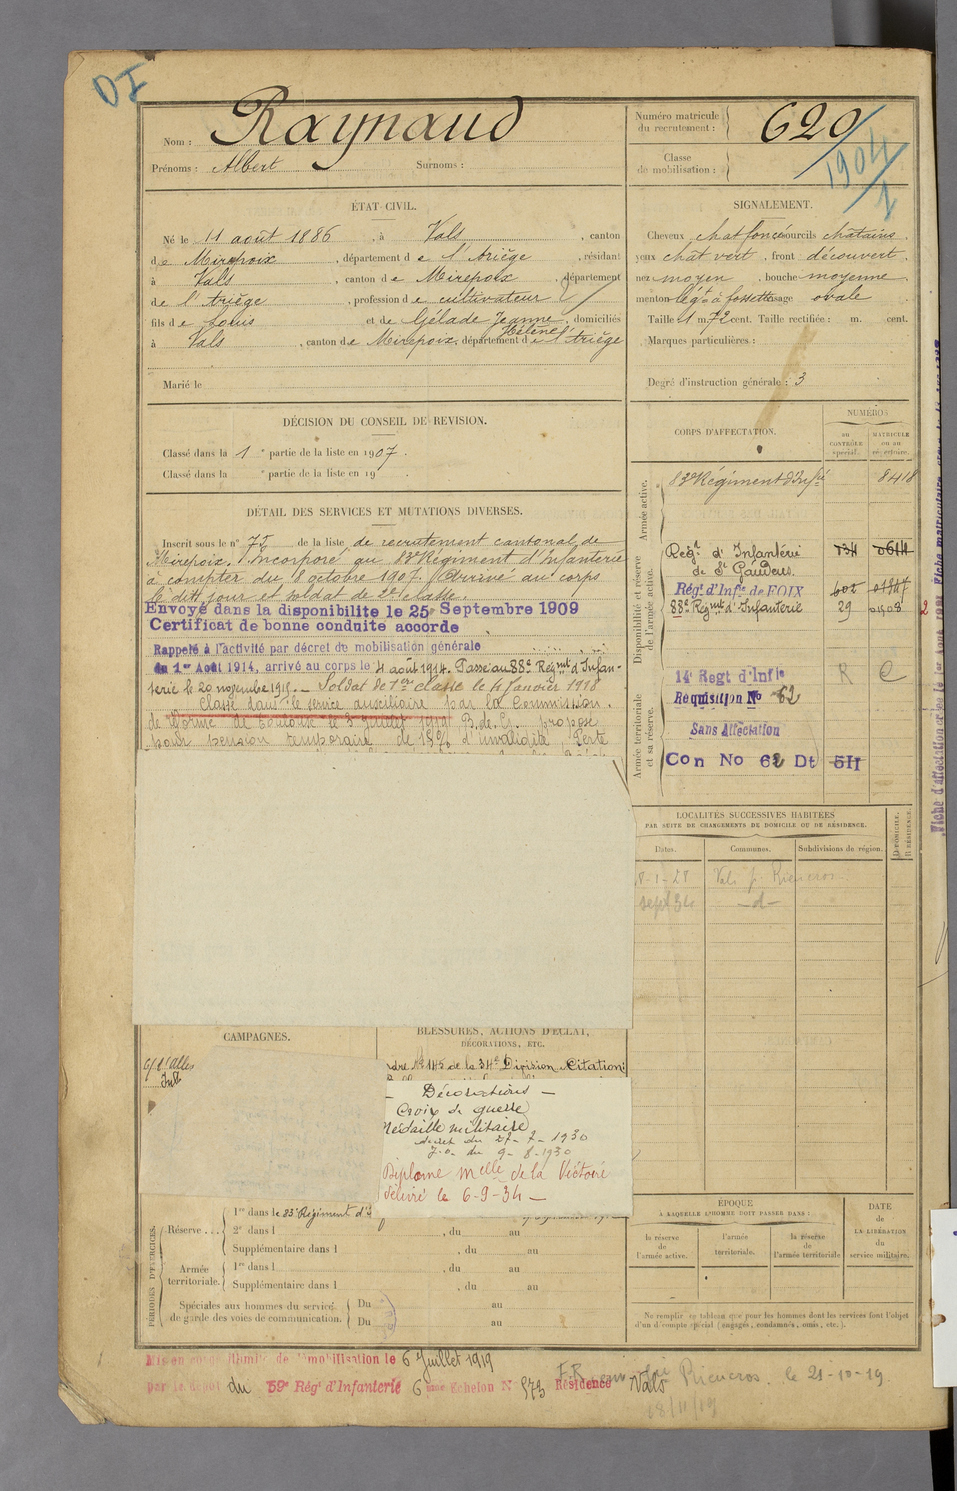 DI
Nom : Raynaud
Prénoms : Albert Surnoms :
Numéro matricule du recrutement : 620
Classe de mobilisation : 1904/1
ÉTAT CIVIL.
Né le 11 août 1886, à Vals, canton
de Mirepoix, département de l'Ariège, résidant
à Vals, canton de Mirepoix, département
de l'Ariège, profession de cultivateur
fils de Louis et de Gélade Jeanne Hélène, domiciliés
à Vals, canton de Mirepoix, département de l'Ariège
Marié le
SIGNALEMENT.
Cheveux chat foncé sourcils chatains
yeux chat vert, front découvert,
nez moyen, bouche moyenne
menton lég<sup>t</sup> à fossette visage ovale
Taille 1 m. 72 cent. Taille rectifiée : m. cent.
Marques particulières :
Degré d'instruction générale : 3
DÉCISION DU CONSEIL DE REVISION.
Classé dans la 1e partie de la liste en 1907.
Classé dans la e partie de la liste en 19 .
DÉTAIL DES SERVICES ET MUTATIONS DIVERSES.
Inscrit sous le n° 75 de la liste de recrutement cantonal de
Mirepoix. Incorporé au 83e Régiment d'Infanterie
à compter du 8 octobre 1907. Arrivé au corps
le dit jour et soldat de 2e classe.
Envoyé dans la disponibilite le 25 Septembre 1909
Certificat de bonne conduite accorde
Rappelé à l'activité par décret de mobilisation générale
du 1er Août 1914, arrivé au corps le 4 août 1914. Passé au 88e Régmt d'Infan-
terie le 20 novembre 1915. — Soldat de 1ere classe le 4 Janvier 1918
Classé dans le service auxiliaire par la Commission
de réforme de Toulouse le 3 Juillet 1919 B. de G. proposé
pour pension temporaire de 15% d'invalidité, Perte
CORPS D'AFFECTATION.
NUMÉROS
au CONTRÔLE spécial.
MATRICULE ou au répertoire.
Armée active.
83e Régiment d'Infie 8418
Disponibilité et réserve de l'armée active.
Régt d'Infanterie de St Gaudens.
Régt d'Infie de FOIX
88e Régmt d'Infanterie 29 01508
Armée territoriale et sa réserve.
14e Regt d'Infie R C
Réquisition No 62
Sans Affectation
Con No 62 Dt 511
LOCALITÉS SUCCESSIVES HABITÉES
PAR SUITE DE CHANGEMENTS DE DOMICILE OU DE RÉSIDENCE.
Dates. Communes. Subdivisions de région. D. DOMICILE. R. RÉSIDENCE.
8-1-28 Vals p. Rieucros
sept 34 —d—
CAMPAGNES.
BLESSURES, ACTIONS D'ÉCLAT,
DÉCORATIONS, ETC.
Ordre No 145 de la 34e Division. Citation:
— Décorations —
Croix de guerre
Médaille militaire
décret du 27-7-1930
J.O. du 9-8-1930
Diplôme Melle de la Victoire
délivré le 6-9-34 —
PÉRIODES D'EXERCICES.
Réserve . . .
1er dans le 83e Régiment d'I
2e dans l , du au
Supplémentaire dans l , du au
Armée territoriale.
1re dans l , du au
Supplémentaire dans l , du au
Spéciales aux hommes du service de garde des voies de communication.
Du au
Du au
ÉPOQUE
À LAQUELLE L'HOMME DOIT PASSER DANS :
la réserve de l'armée active.
l'armée territoriale.
la réserve de l'armée territoriale
DATE de LA LIBÉRATION du service militaire.
Ne remplir ce tableau que pour les hommes dont les services font l'objet
d'un décompte spécial (engagés, condamnés, omis, etc.).
Mis en congé illimité de démobilisation le 6 Juillet 1919
par le dépôt du 59e Régt d'Infanterie 6ème Echelon N° 573 Résidence Vals
Rieucros. le 21-10-19